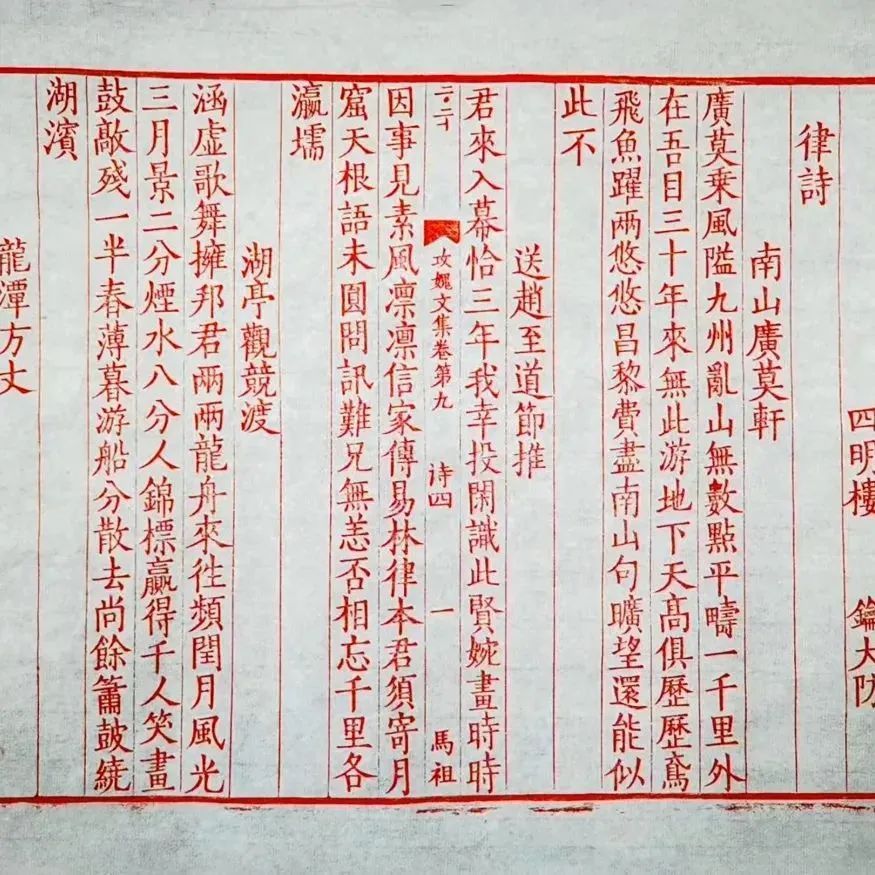 四明樓 鑰大防
律詩
南山廣莫軒
廣莫乘風隘九州亂山無數點平疇一千里外
在吾目三十年來無此游地下天高俱歷歷鳶
飛魚躍兩悠悠昌黎費盡南山句曠望還能似
此不
送趙至道節推
君來入幕恰三年我幸投閑識此賢婉畫時時
攻媿文集卷第九 诗四 一 馬祖
因事見素風凛凛信家傳易林律本君須寄月
窟天根語未圓問訊難兄無恙否相忘千里各
瀛壖
湖亭觀競渡
涵虛歌舞擁邦君兩兩龍舟來往頻閏月風光
三月景二分煙水八分人錦標贏得千人笑畫
鼓敲殘一半春薄暮游船分散去尚餘簫鼓繞
湖濱
龍潭方丈